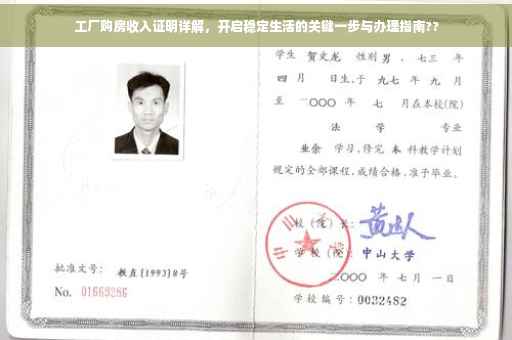 工厂购房收入证明详解，开启稳定生活的关键一步与办理指南??
学生 贺文龙 性别 男 ，七三 年
四 月 日生，于 九七 年 九 月
至 二〇〇〇 年 七 月在本校(院)
法 学 专业
业余 学习，修完 本 科教学计划
规定的全部课程，成绩合格，准予毕业。
校（院）长：
学校（院）：中山大学
二〇〇〇 年 七 月 一 日
学校编号：0032482
批准文号：教直[1993]8号
No. 01669286